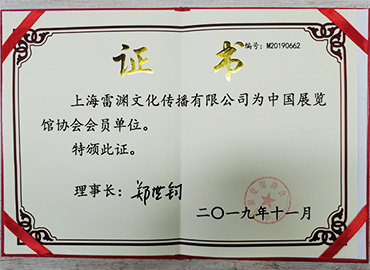 编号：M20190662
证 书
上海雷渊文化传播有限公司为中国展览
馆协会会员单位。
特颁此证。
理事长：郑世钧
二〇一九年十一月